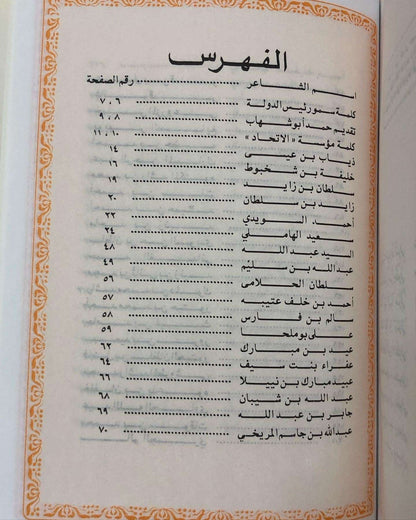 الفهرس
اسم الشاعر ........ رقم الصفحة
كلمة سمو رئيس الدولة ........ ٧،٦
تقديم حمد أبو شهاب ........ ٩،٨
كلمة مؤسسة «الاتحاد» ........ ١١،١٠
ذياب بن عيسى ........ ١٤
خليفة بن شخبوط ........ ١٦
سلطان بن زايد ........ ١٩
زايد بن سلطان ........ ٢٠
أحمد السويدي ........ ٢٢
سعيد الهاملي ........ ٢٤
السيد عبد الله ........ ٤٨
عبد الله بن سليّم ........ ٤٩
سلطان الحلامى ........ ٥٦
أحمد بن خلف عتيبه ........ ٥٧
سالم بن فارس ........ ٥٨
على بوملحا ........ ٥٩
عيد بن مبارك ........ ٦٢
عفراء بنت سيف ........ ٦٤
عبيد مبارك بن نييلا ........ ٦٦
عبد الله بن شيبان ........ ٦٨
جابر بن عبد الله ........ ٦٩
عبدالله بن جاسم المريخي ........ ٧٠